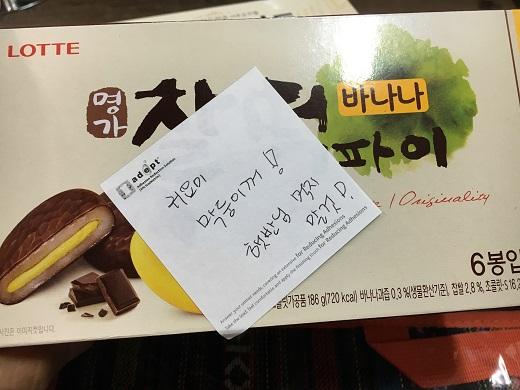 LOTTE
명가
찰
바나나
파이
Originality
adept
귀요미
막둥이꺼!
햇반님 먹지
말것!
for Reducing Adhesions
for Reducing Adhesions
6봉입
186 g(720 kcal) 바나나과즙 0.3 %(생물환산기준), 찹쌀 2.8 %, 초콜릿
사진은 이미지컷입니다